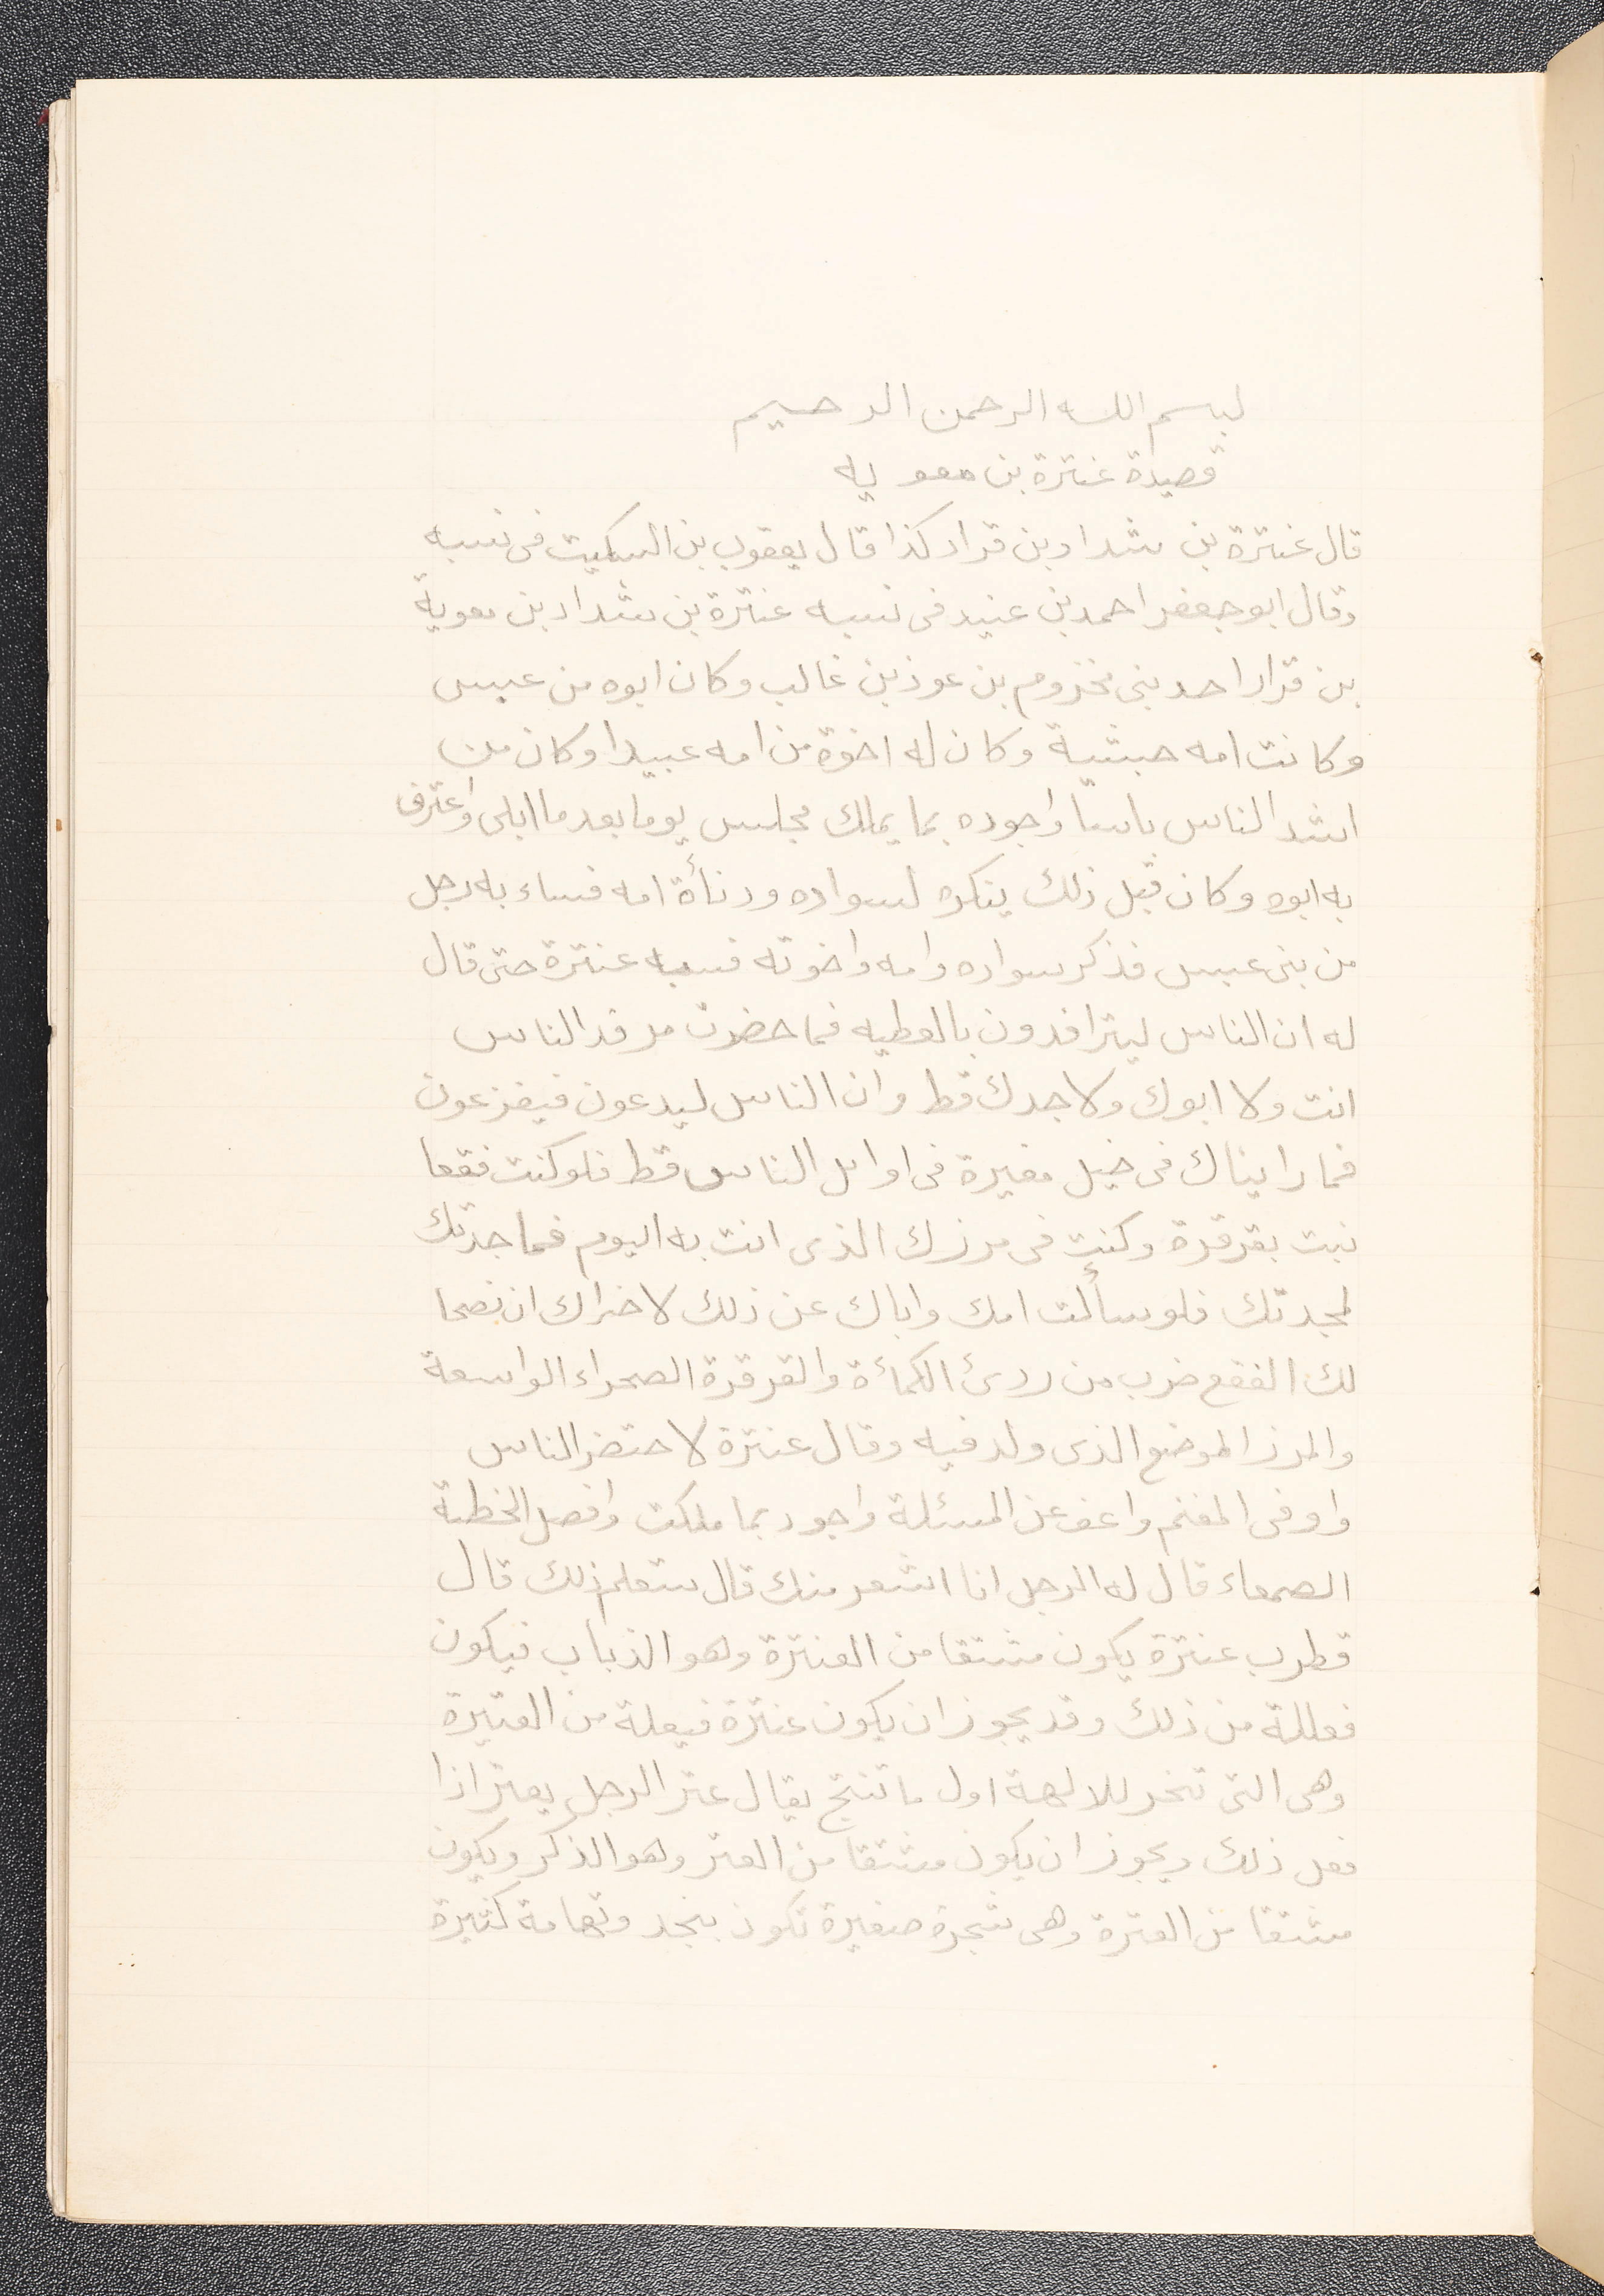 بسم الله الرحمن الرحيم
قصيدة عنترة بن معويه
قال عنترة بن شداد بن قراد كذا قال يعقوب بن السكيت فى نسبه
وقال ابو جعفر احمد بن عنيد فى نسبه عنترة بن شداد بن معوية
بن قراد احد بنى مخزوم بن عوذ بن غالب وكان ابوه من عبس
وكانت امه حبشية وكان له اخوة من امه عبيدا وكان من
اشد الناس باسًا واجوده بما يملك مجلس يوما بعد ما ابلى واعترف
به ابوه وكان قبل ذلك ينكره لسواده ودنأة امه فساء به رجل
من بنى عبس فذكر سواده وامه واخوته فسبه عنترة حتى قال
له ان الناس ليترافدون بالعطيه فما حضرت مرفد الناس
انت ولا ابوك ولا جدك قط وان الناس ليدعون فيفزعون
فما رايناك فى خيل مغيرة فى اوائل الناس قط فلو كنت فقعا
نبت بقرقرة وكنت فى مرزك الذى انت به اليوم فما جدتك
لمجدتك فلو سألت امك واباك عن ذلك لاخبراك ان نصحا
لك الفقع ضرب من ردئ الكمأة والقرقرة الصحراء الواسعة
والمرز الموضع الذى ولد فيه وقال عنترة لاحتضر الناس
واوفى المغنم واعف عن المسئلة واجود بما ملكت وافصل الخطبة
الصمعاء قال له الرجل انا اشعر منك قال ستعلم ذلك قال
قطرب عنترة يكون مشتقا من العنترة وهو الذباب فيكون
فعللة من ذلك وقد يجوز ان يكون عنترة فيعلة من العتيرة
وهى التى تنحر للالهة اول ما تنتج يقال عتر الرجل يعتر اذا
فعل ذلك ويجوز ان يكون مشتقا من العتر وهو الذكر ويكون
مشتقا من العترة وهى شجرة صغيرة تكون بنجد وتهامة كثيرة